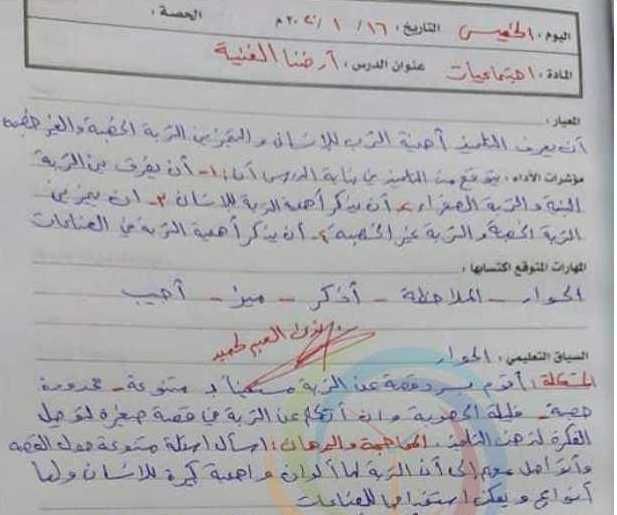 اليوم : الخميس التاريخ : ١٦ / ١ / ٢٠٢٠م الحصة :
المادة : اجتماعيات عنوان الدرس : أرضنا الغنية
المعيار :
أن يعرف التلميذ أهمية الترب للإنسان والتمييز بين التربة الخصبة والغير خصبة
مؤشرات الأداء : يتوقع من التلميذ في نهاية الدرس أن : ١- أن يفرق بين التربة
البنية والتربة الصفراء ٢- أن يذكر أهمية التربة للإنسان ٣- ان يميز بين
التربة الخصبة والتربة غير الخصبة ٤- أن يذكر أهمية التربة في الصناعات
المهارات المتوقع اكتسابها :
الحوار - الملاحظة - أتذكر - ميز - أجيب
السياق التعليمي : الحوار
المشكلة : أقوم بسرد قصة عن التربة متنوعة - محدودة
خصبة - قليلة الخصوبة وان أتكلم عن التربة في قصة صغيرة لتوصل
الفكرة لذهن التلاميذ . المحاججة والبرهان : اسأل اسئلة متنوعة حول القصة
وأتواصل معهم إلى أن التربة لها ألوان واهمية كبيرة للإنسان ولها
أنواع ويمكن استخدامها للصناعات